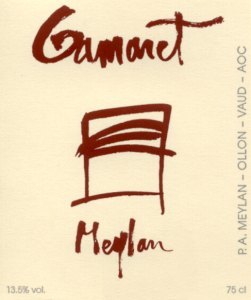 Gamaret
Meylan
P. A. MEYLAN - OLLON - VAUD - AOC
13.5% vol.
75 cl